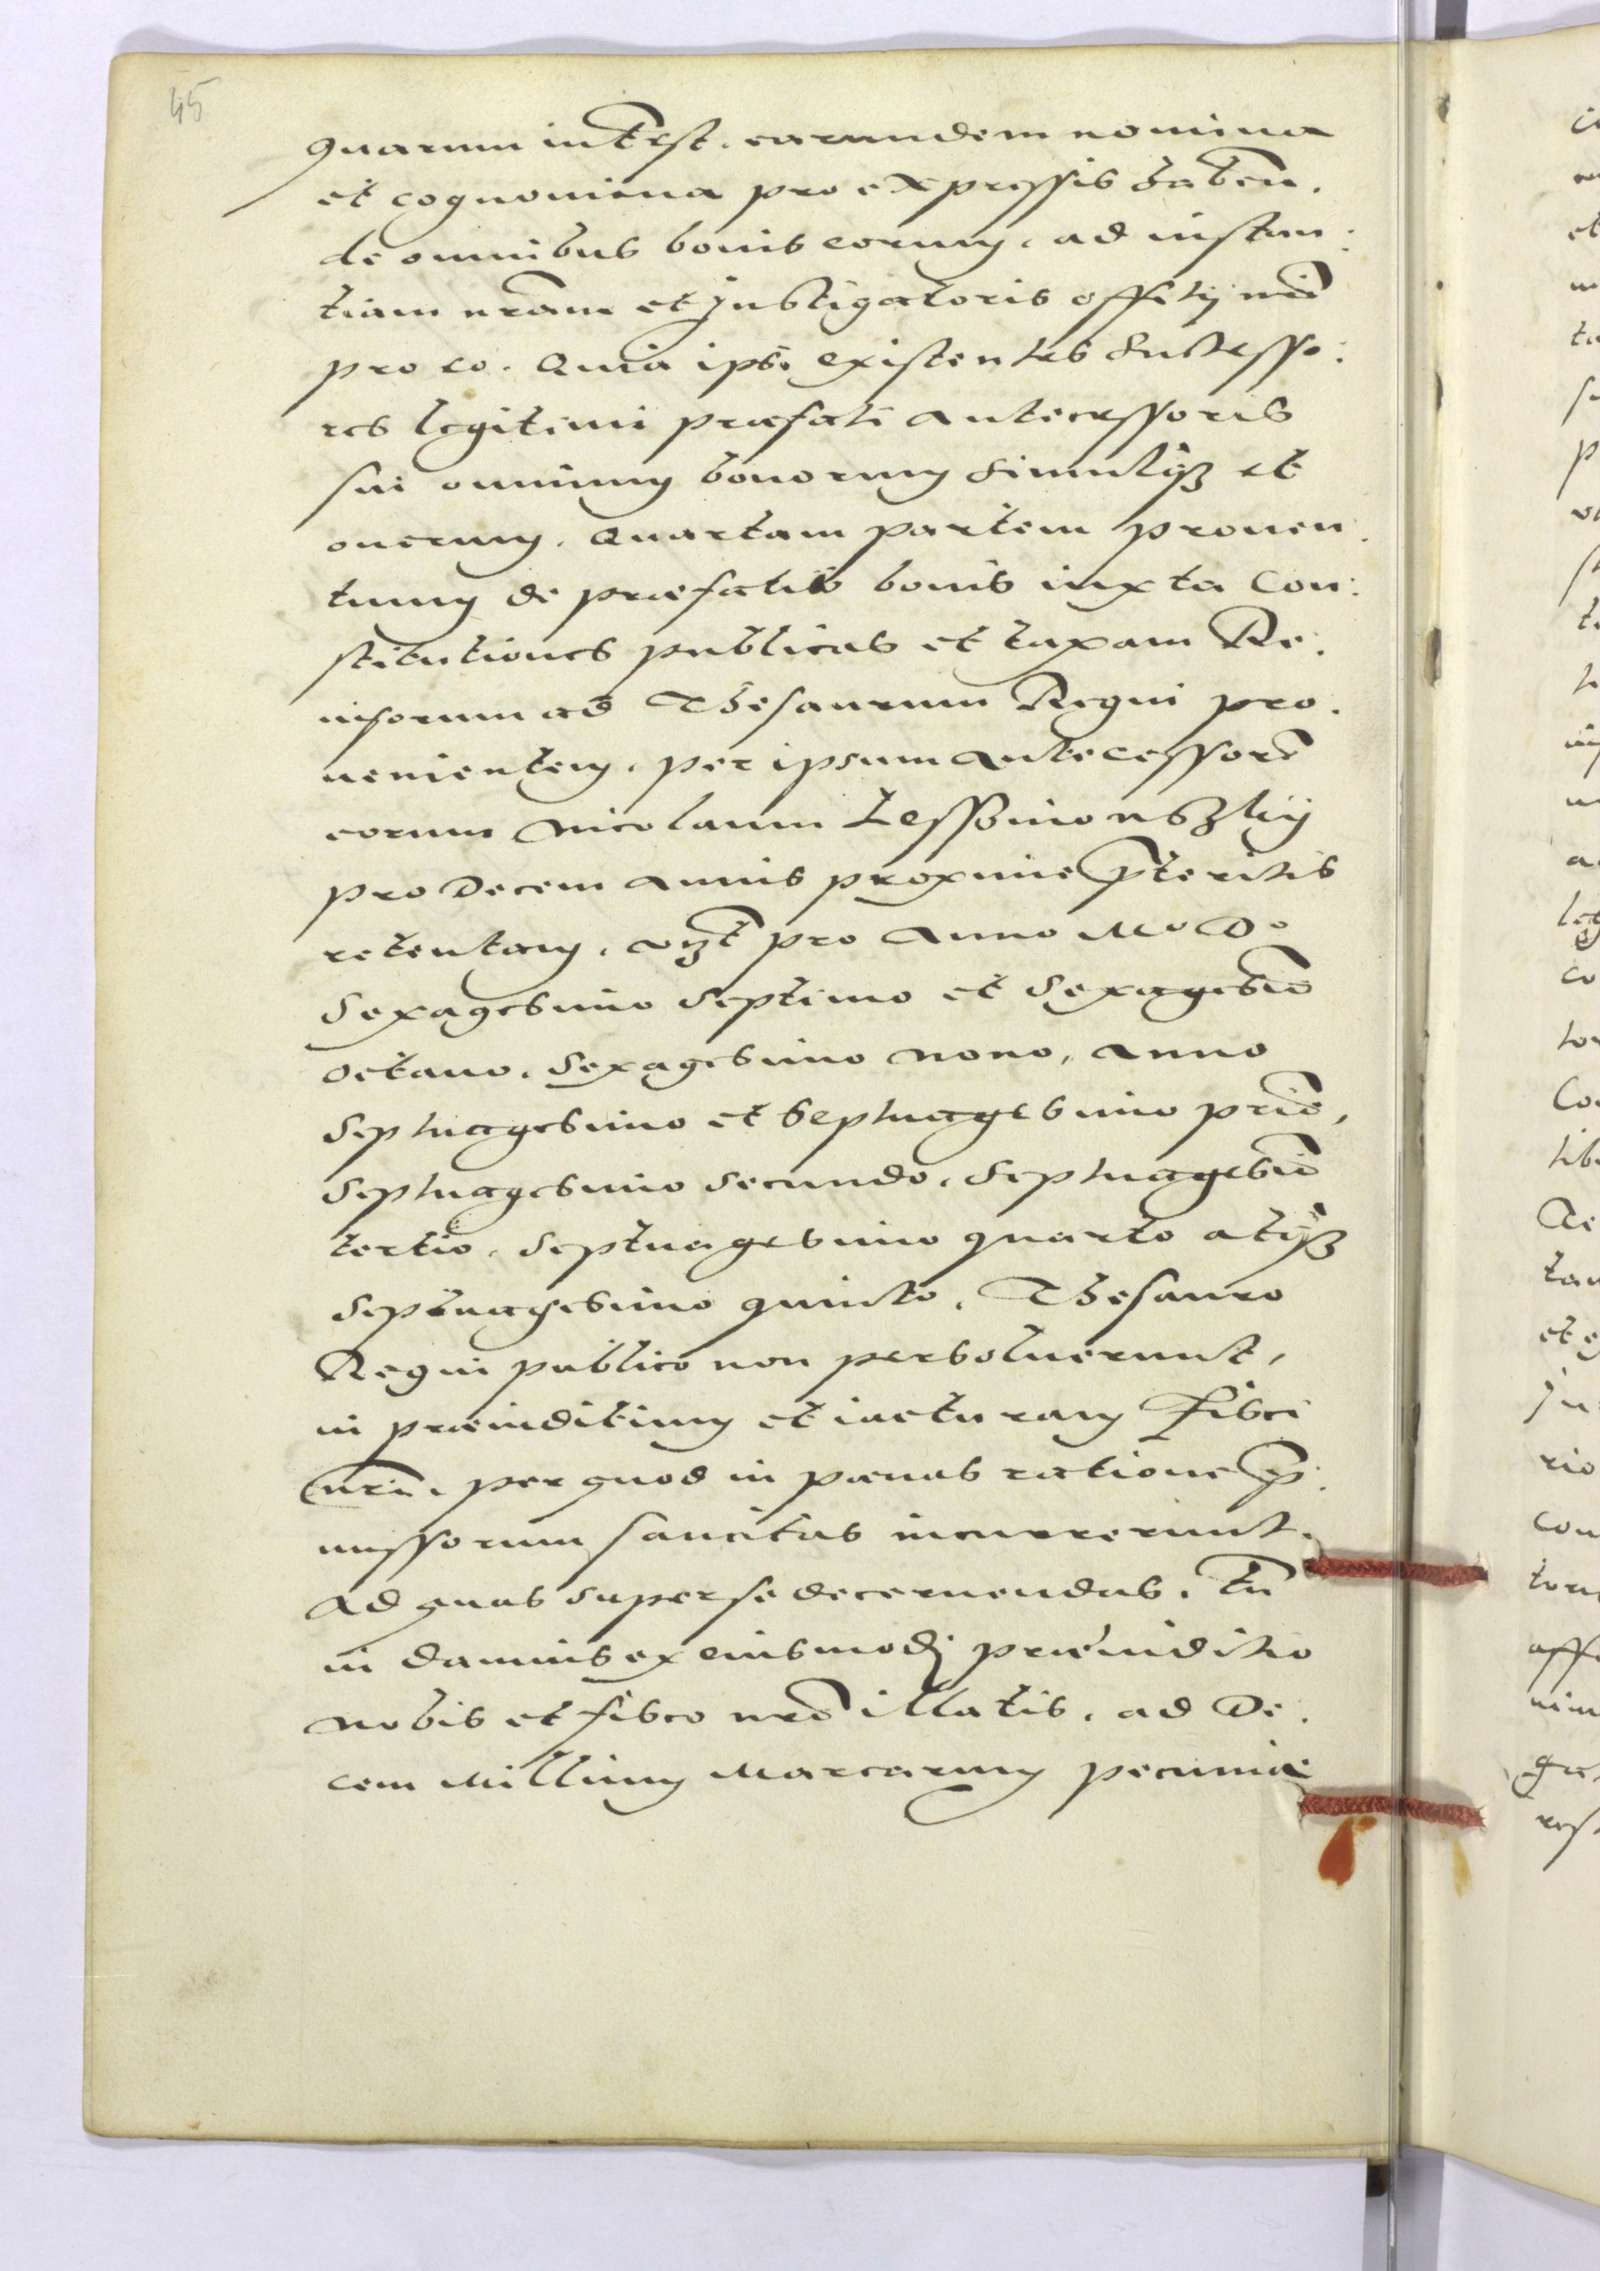 45
quarum intẽst. earundem nomina
et cognomina pro expressis habeñ.
de omnibus bonis eorum. ad instan:
tiam nr̃am et Instigatoris officij nr̃i
pro eo. Quia ipsi existentes Successo:
res legitimi praefati antecessoris
sui omnium bonorum simulq3 et
onerum. Quartam partem prouen:
tuum de praefatis bonis iuxta Con:
stitutiones publicas et taxam Re:
uisorum ad Thesaurum Regni pro:
uenientem. per ipsum antecessorẽ
eorum Nicolaum
pro Decem annis proxime p̃teritis
retentam. vz̃t pro Anno Mo Do
Sexagesimo Septimo et Sexagesiõ
octauo. Sexagesimo nono. Anno
Septuagesimo et Septuagesimo priõ,
Septuagesimo secundo. Septuagesiõ
tertio. Septuagesimo quarto atq3
Septuagesimo quinto. Thesauro
Regni publico non persoluerunt,
in praeiuditium et iacturam Fisci
nr̃i. per quod in poenas ratione p̃:
missorum sancitas incurrerunt.
Ad quas super se decernendas. tũ
in damnis ex eiusmodj praeiuditio
nobis et fisco nr̃o illatis. ad De:
cem Millium Marcarum pecuniae